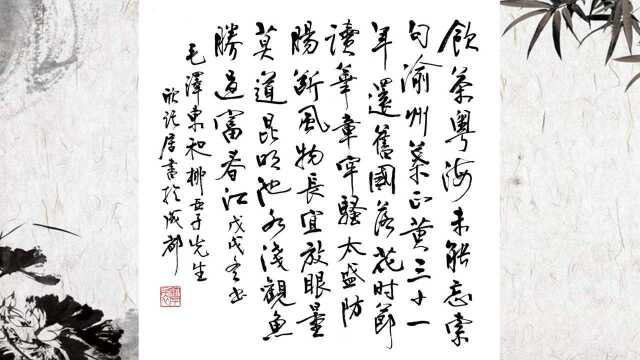 飲茶粵海未能忘索
句渝州葉正黃三十一
年還舊國落花时節
讀華章牢騷太盛防
腸斷風物長宜放眼量
莫道昆明池水淺觀魚
勝過富春江戊戌冬书
毛澤東和柳亞子先生
居書於成都